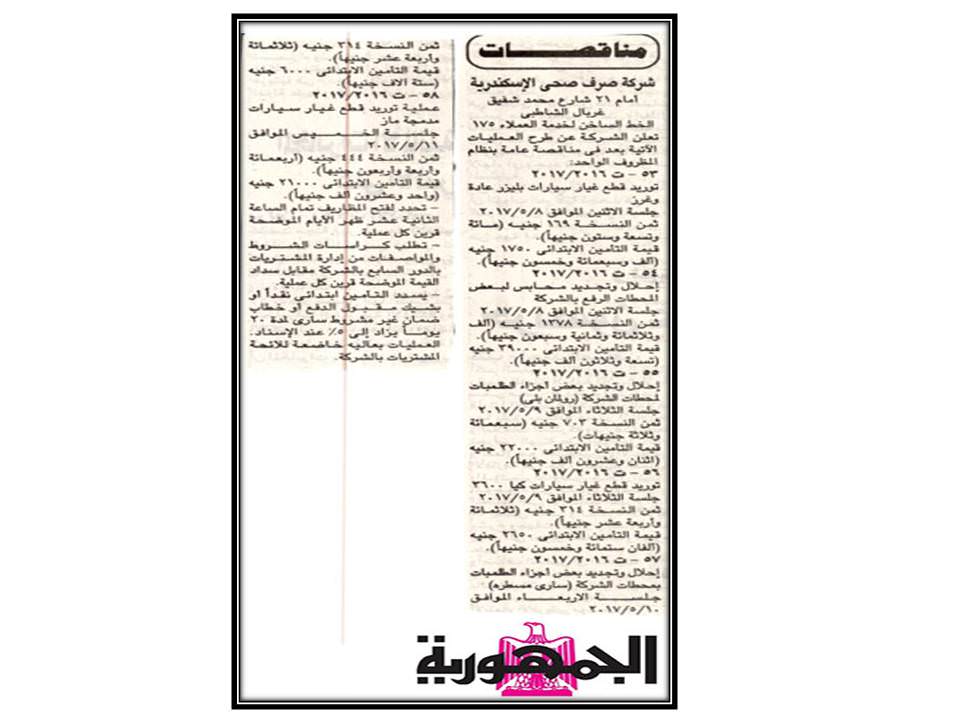 مناقصات
شركة صرف صحى الإسكندرية
أمام ٢١ شارع محمد شفيق
غربال الشاطبى
الخط الساخن لخدمة العملاء ١٧٥
تعلن الشركة عن طرح العمليات
الآتية بعد فى مناقصة عامة بنظام
المظروف الواحد:
٥٣ - ت ٢٠١٧/٢٠١٦
توريد قطع غيار سيارات بليزر عادة
وغرز
جلسة الاثنين الموافق ٢٠١٧/٥/٨
ثمن النسخة ١٦٩ جنيه (مائة
وتسعة وستون جنيهاً).
قيمة التامين الابتدائى ١٧٥٠ جنيه
(ألف وسبعمائة وخمسون جنيهاً).
٥٤ - ت ٢٠١٧/٢٠١٦
إحلال وتجديد محابس لبعض
المحطات الرفع بالشركة
جلسة الاثنين الموافق ٢٠١٧/٥/٨
ثمن النسخة ١٣٧٨ جنيه (ألف
وثلاثمائة وثمانية وسبعون جنيهاً).
قيمة التامين الابتدائى ٣٩٠٠٠ جنيه
(تسعة وثلاثون ألف جنيهاً).
٥٥ - ت ٢٠١٧/٢٠١٦
إحلال وتجديد بعض أجزاء الطلمبات
لمحطات الشركة (رولمان بلى)
جلسة الثلاثاء الموافق ٢٠١٧/٥/٩
ثمن النسخة ٧٠٣ جنيه (سبعمائة
وثلاثة جنيهات).
قيمة التامين الابتدائى ٢٢٠٠٠ جنيه
(اثنان وعشرون ألف جنيهاً).
٥٦ - ت ٢٠١٧/٢٠١٦
توريد قطع غيار سيارات كيا ٣٦٠٠
جلسة الثلاثاء الموافق ٢٠١٧/٥/٩
ثمن النسخة ٣١٤ جنيه (ثلاثمائة
وأربعة عشر جنيهاً).
قيمة التامين الابتدائى ٢٦٥٠ جنيه
(ألفان ستمائة وخمسون جنيهاً).
٥٧ - ت ٢٠١٧/٢٠١٦
إحلال وتجديد بعض أجزاء الطلمبات
بمحطات الشركة (سارى مسطره)
جلسة الاربعاء الموافق
٢٠١٧/٥/١٠
ثمن النسخة ٣١٤ جنيه (ثلاثمائة
وأربعة عشر جنيهاً).
قيمة التامين الابتدائى ٦٠٠٠ جنيه
(ستة الاف جنيهاً).
٥٨ - ت ٢٠١٧/٢٠١٦
عملية توريد قطع غيار سيارات
مدمجة ماز
جلسة الخميس الموافق
٢٠١٧/٥/١١
ثمن النسخة ٤٤٤ جنيه (أربعمائة
وأربعة وأربعون جنيهاً).
قيمة التامين الابتدائى ٢١٠٠٠ جنيه
(واحد وعشرون ألف جنيهاً).
- تحدد لفتح المظاريف تمام الساعة
الثانية عشر ظهر الأيام الموضحة
قرين كل عملية.
- تطلب كراسات الشروط
والمواصفات من إدارة المشتريات
بالدور السابع بالشركة مقابل سداد
القيمة الموضحة قرين كل عملية.
- يسدد التامين ابتدائى نقداً او
بشيك مقبول الدفع أو خطاب
ضمان غير مشروط سارى لمدة ٢٠
يوماً يزاد إلى ٥٪ عند الإسناد.
العمليات بعاليه خاضعة للائحة
المشتريات بالشركة.
الجمهورية